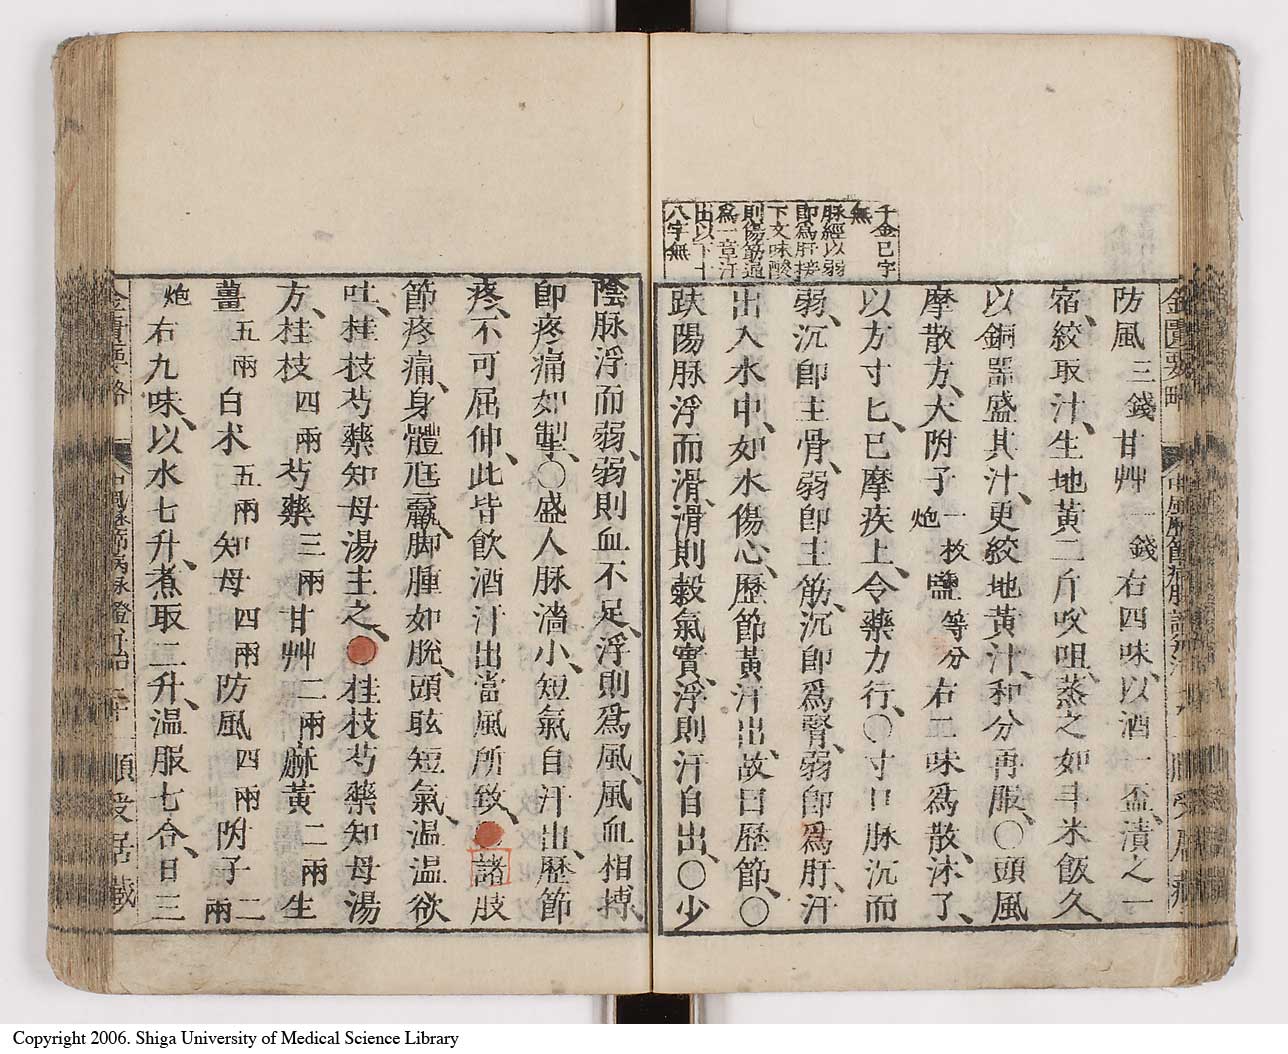 千金已字
無
脉經以弱
即爲肝接
下文味酸
則傷筋過
爲一章汗
出以下十
八字無
防風三錢甘艸一錢右四味、以酒一盃、漬之一
宿、絞取汁、生地黃二斤㕮咀、蒸之如斗米飯久
以銅器盛其汁、更絞地黃汁、和分再服、○頭風
摩散方、大附子一枚炮鹽等分右二味爲散、沐了、
以方寸匕、已摩疾上、令藥力行、○寸口脉沉而
弱、沉卽主骨、弱卽主筋、沉卽爲腎、弱卽爲肝、汗
出入水中、如水傷心、歷節黃汗出、故曰歷節、○
趺陽脉浮而滑、滑則穀氣實、浮則汗自出、○少
陰脉浮而弱、弱則血不足、浮則爲風、風血相搏、
卽疼痛如掣、○盛人脉濇小、短氣自汗出、歷節
疼、不可屈伸、此皆飮酒汗出當風所致、諸肢
節疼痛、身體尫羸、脚腫如脫、頭眩短氣、温温欲
吐、桂枝芍藥知母湯主之、桂枝芍藥知母湯
方、桂枝四兩芍藥三兩甘艸二兩麻黃二兩生
薑五兩白朮五兩知母四兩防風四兩附子二兩
炮右九味、以水七升、煮取二升、温服七合、日三
金匱要略 順受居藏